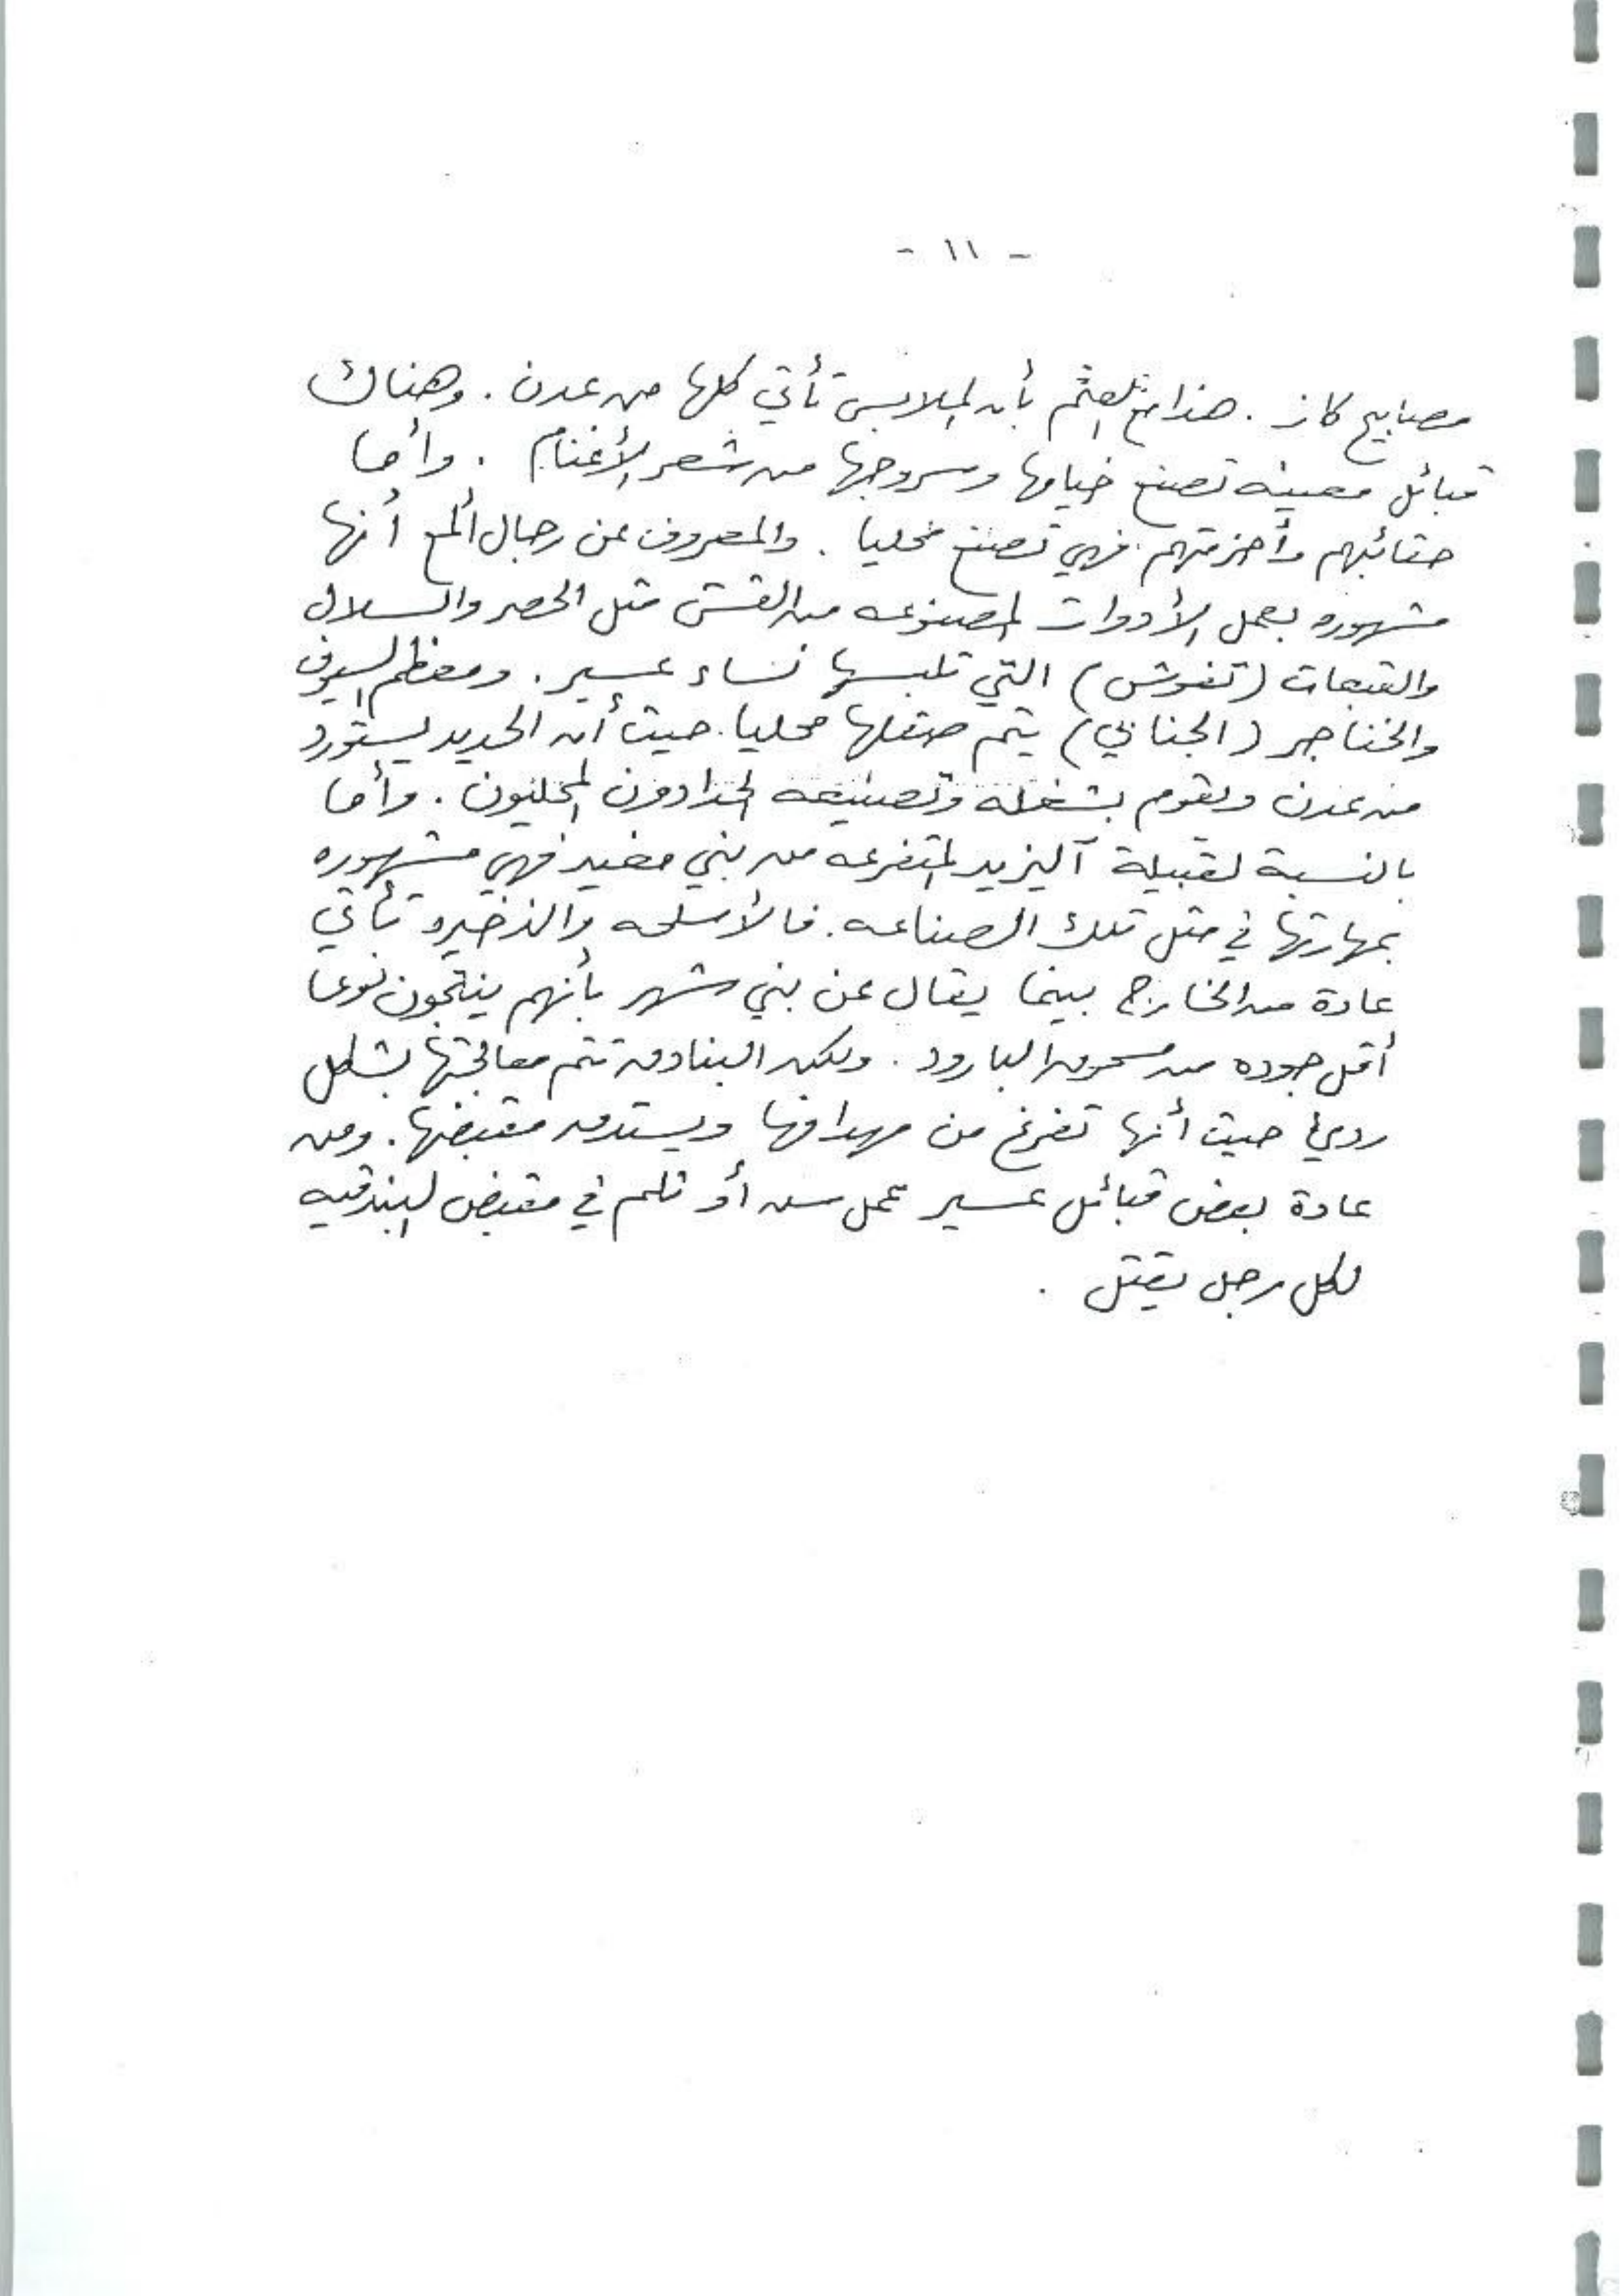 - ١١ -
مصابيح كاز . هذا مع العلم بأن الملابس تأتي كلها من عدن . وهناك
قبائل معينه تصنع خيامها وسروجها من شعر الأغنام . وأما
حقائبهم وأحزمتهم فهي تصنع محليا . والمعروف عن رجال ألمع أنها
مشهوره بعمل الأدوات المصنوعه من القش مثل الحصر والسلال
والقبعات (تفوش) التي تلبسها نساء عسير . ومعظم السيوف
والخناجر (الجنابي) يتم صقلها محليا . حيث أن الحديد يستورد
من عدن ويقوم بشغله وتصنيعه الحدادون المحليون . وأما
بالنسبة لقبيلة آل يزيد المتفرعه من بني مغيد فهي مشهوره
بمهارتها في مثل تلك الصناعه . فالأسلحه والذخيره تأتي
عادة من الخارج بينما يقال عن بني شهر بأنهم ينتجون نوعا
أقل جوده من مسحوق البارود . ولكن البنادق تتم معالجتها بشكل
رديئ حيث أنها تفرغ من مهدافها ويستدق مقبضها . ومن
عادة بعض قبائل عسير عمل سن أو ثلم في مقبض البندقيه
لكل رجل يقتل .